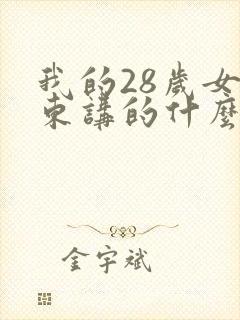 我的28歲女
東講的什麼
金宇斌